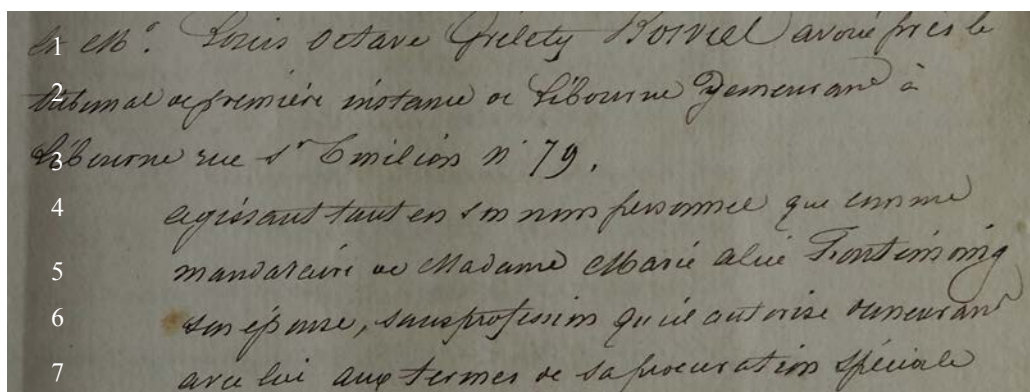 1 En Mᵉ. Louis Octave Grélety Bosviel avoué près le
2 tribunal de première instance de Libourne Demeurant à
3 Libourne rue Sᵗ Emilion nº 79,
4 agissant tant en son nom personnel que comme
5 mandataire de Madame Marie Alice Fontémoing
6 son épouse, sans profession qu'il autorise demeurant
7 avec lui aux termes de sa procuration spéciale